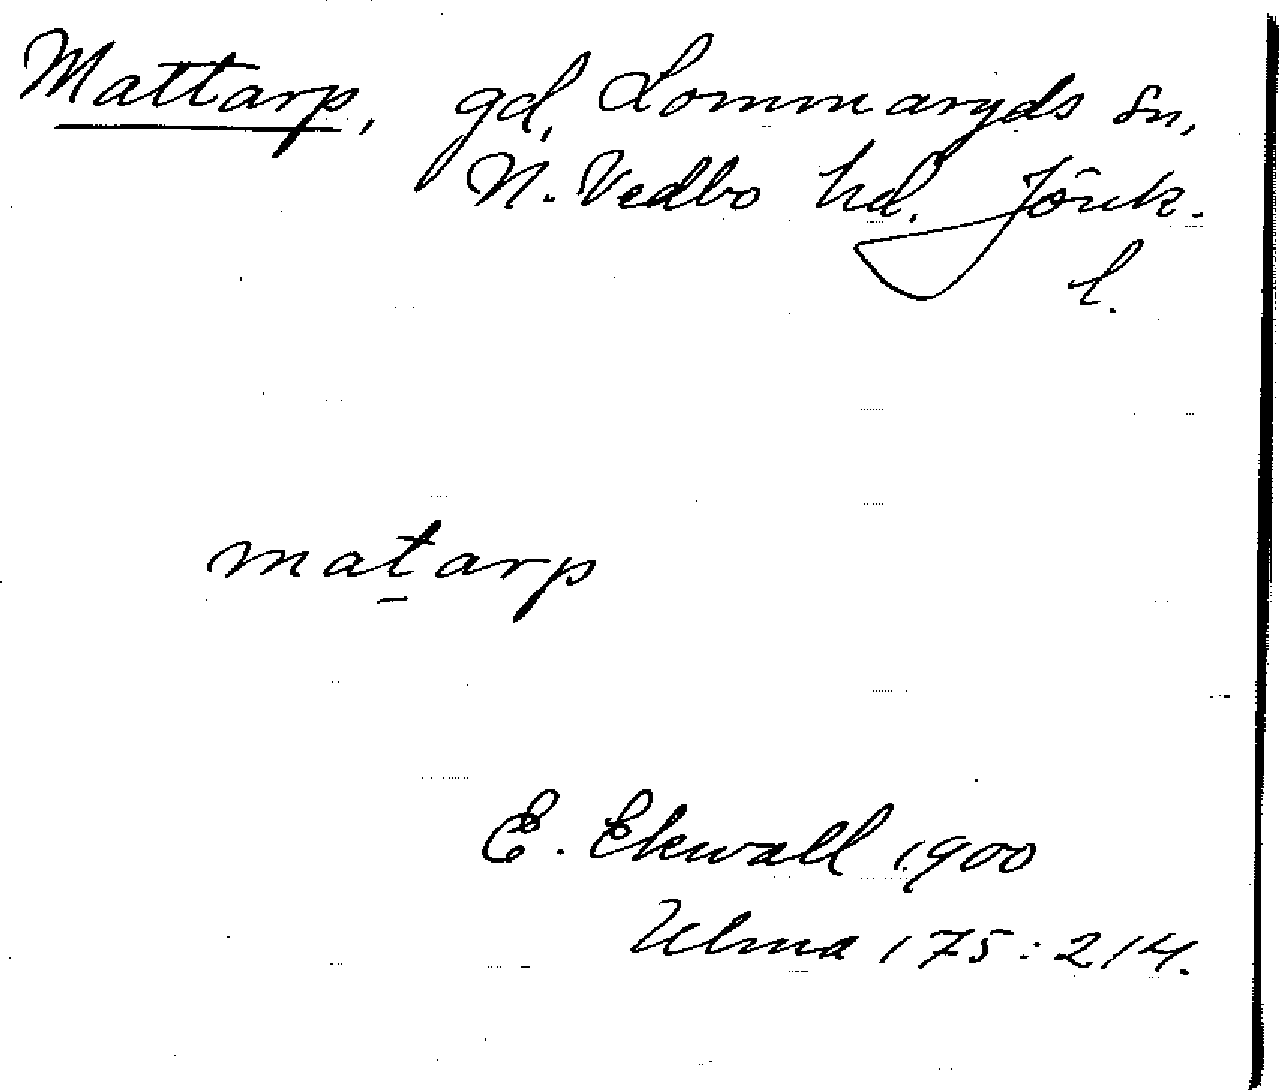 Mattarp, gd, Lommaryds sn,
N. Vedbo hd. Jönk.
l.
matarp
E. Ekwall 1900
Ulma 175:214.